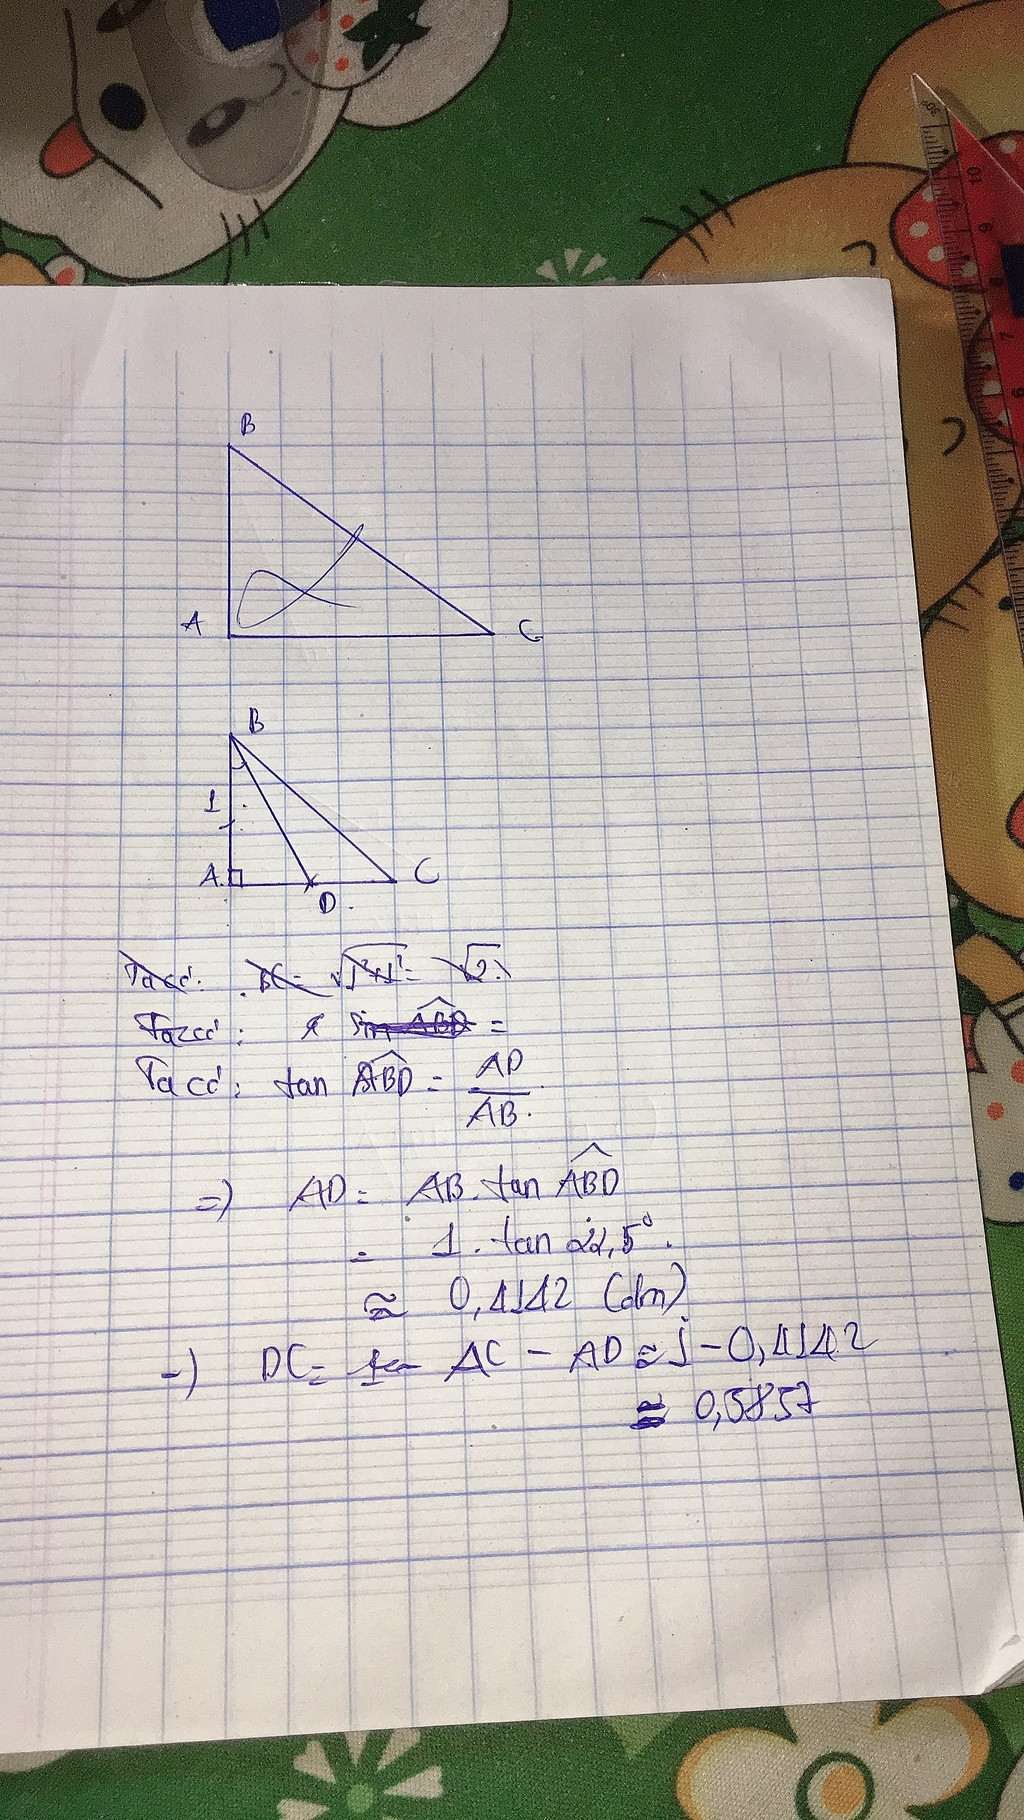 B
A
C
B
1
A
C
D.
Ta có: BC = √1²+1² = √2.
Ta có: sin ABD =
Ta có: tan ABD = AD
AB.
=) AD = AB. tan ABD
= 1. tan 22,5°.
≈ 0,4142 (dm)
=) DC = AC - AD ≈ 1 - 0,4142
≈ 0,5857
10
9
8
7
6